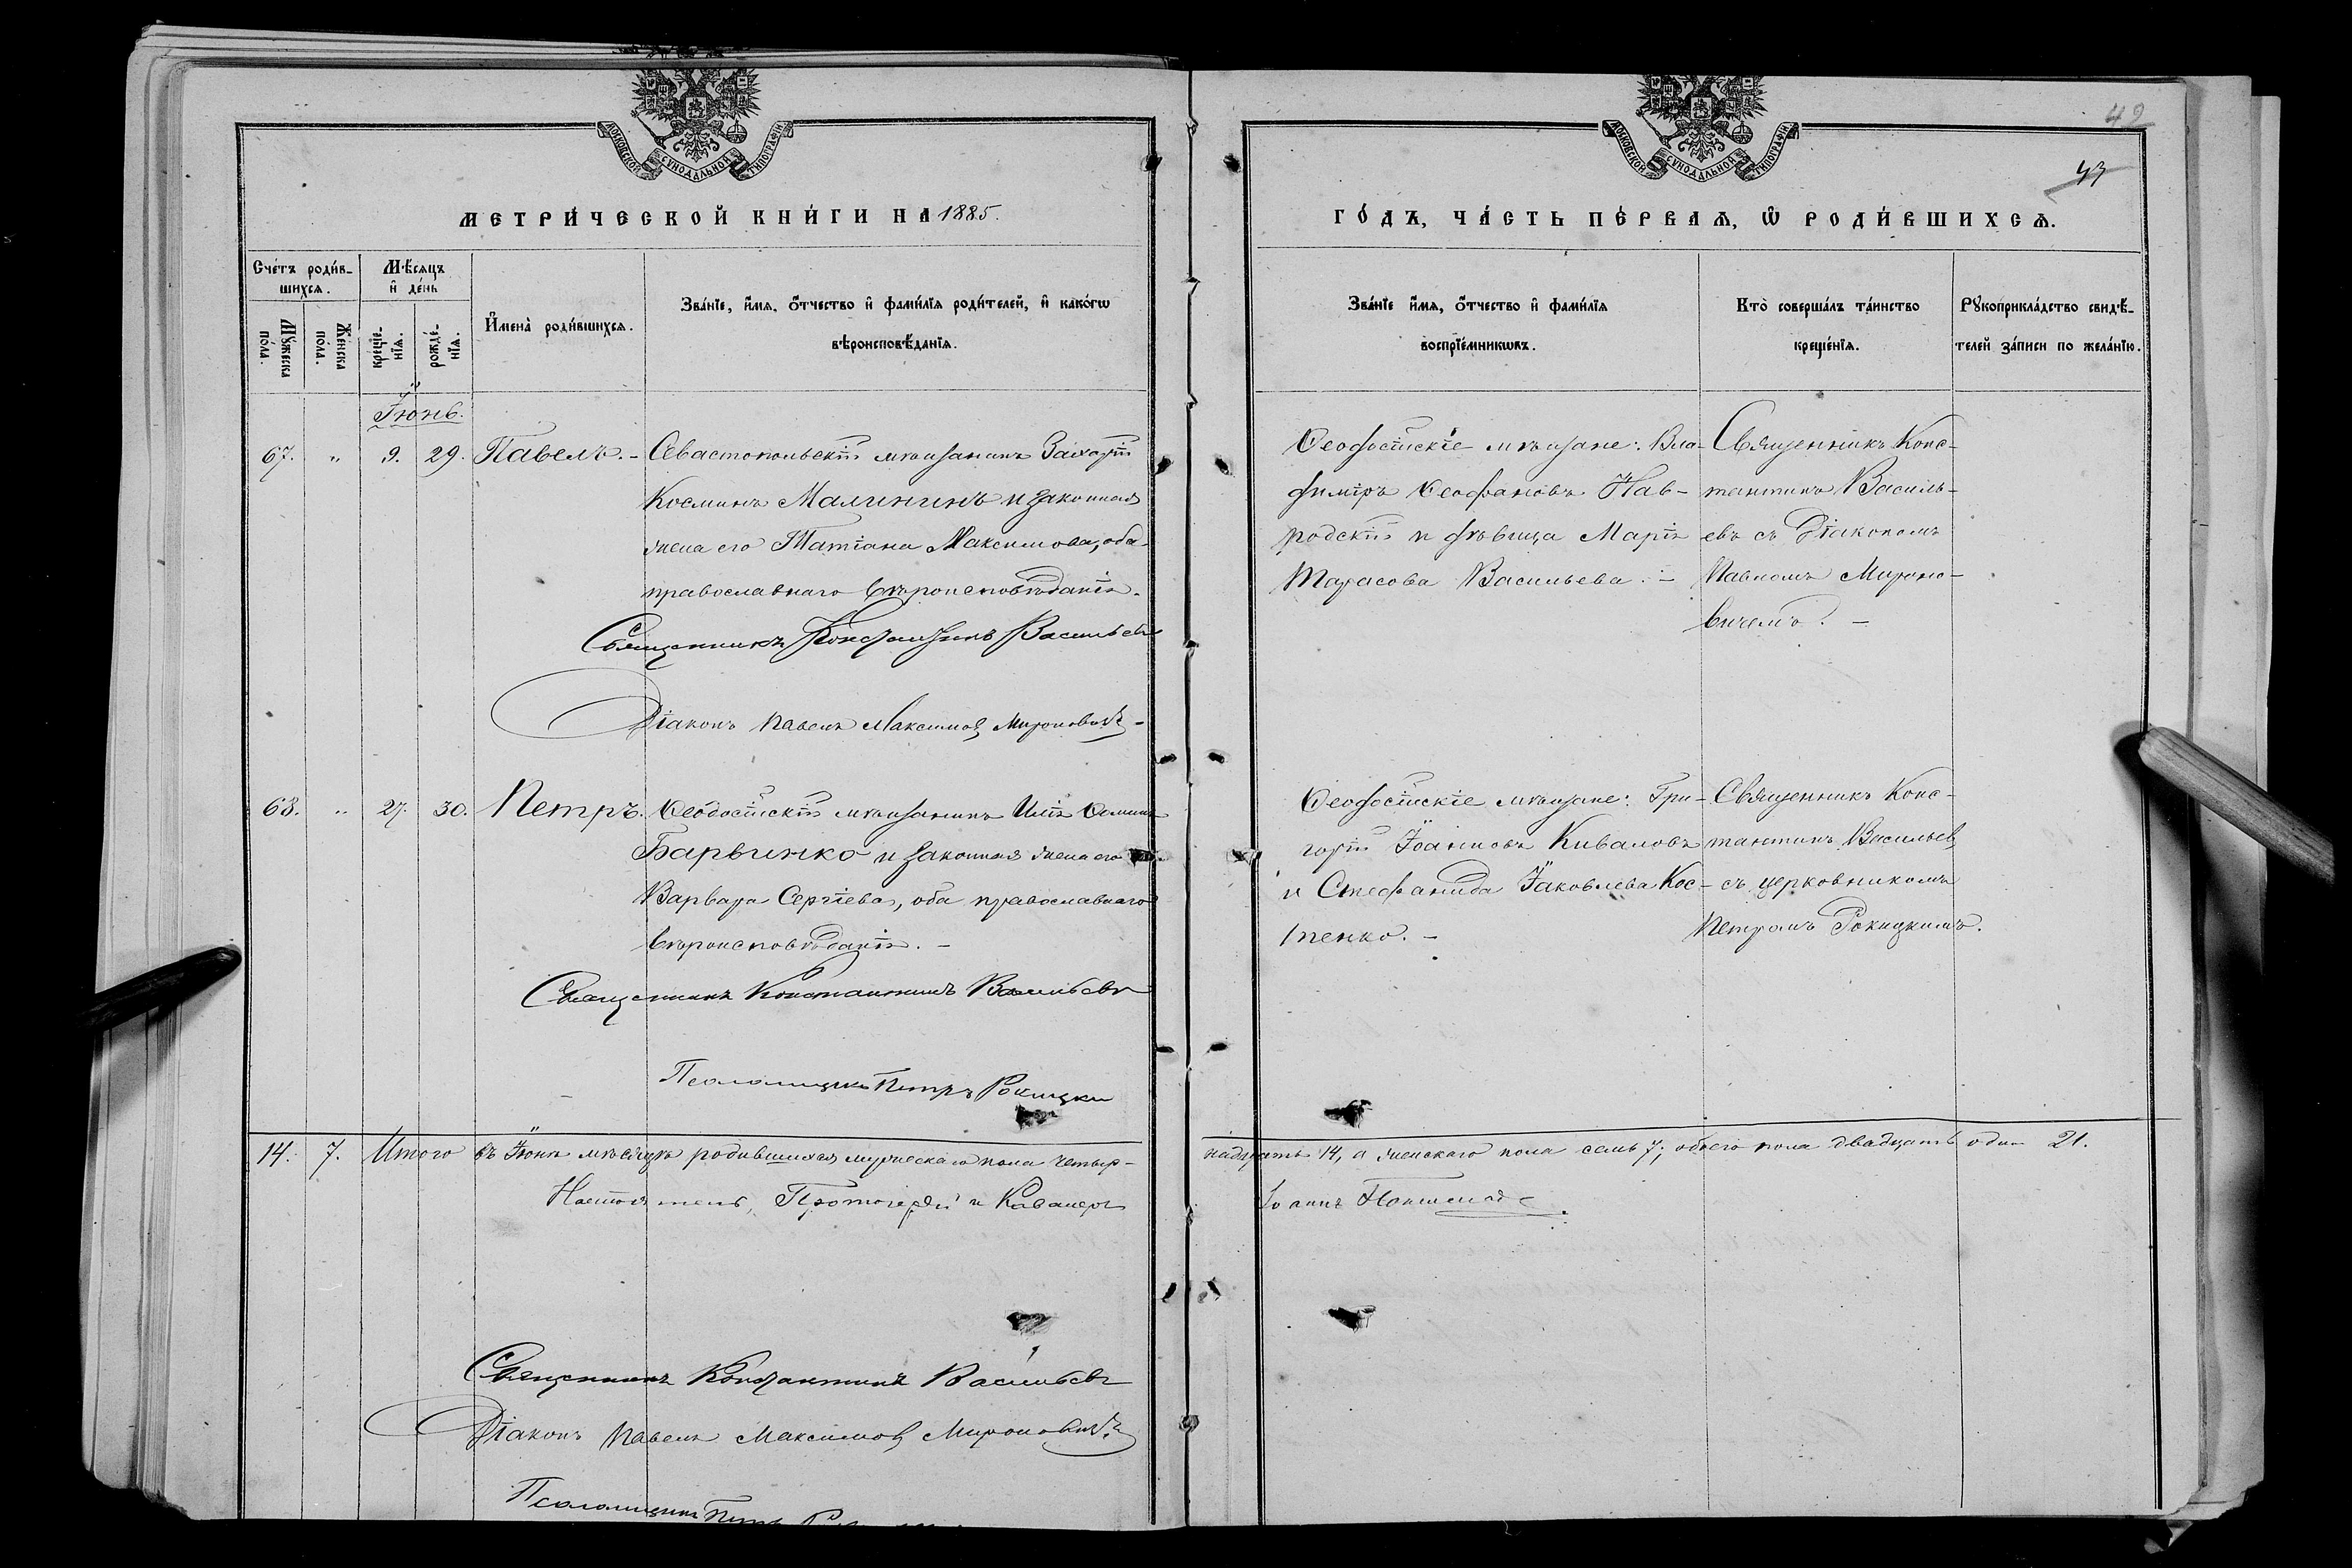 МОСКОВСКОЙ СѴНОДАЛЬНОЙ ТИПОГРАФІИ
МЕТРИ́ЧЕСКОЙ КНИ́ГИ НА 1885.
Сче́тъ роди́в-
шихся.
Мѣ́сяцъ
и҆ де́нь
Мꙋ́жеска
по́ла.
Же́нска
по́ла.
креще́-
нїя.
рожде́-
нїя.
И҆мена̀ роди́вшихся.
Зва́нїе, и҆́мя, ѻ҆́тчество и҆ фами́лїя роди́телей, и҆ како́гѡ
вѣроисповѣ́данїя.
Іюнь.
67. " 9. 29. Павелъ. - Севастопольскій мѣщанинъ Захарій
Косминъ Малининъ и законная
жена его Татіана Максимова, оба
православнаго вѣроисповѣданія.
Священникъ Константинъ Васильевъ
Діаконъ Павелъ Максимовъ Мироновичъ -
68. " 27. 30. Петръ. Ѳеодосійскій мѣщанинъ Илія Ѳоминъ
Барвинко и законная жена его
Варвара Сергіева, оба православнаго
вѣроисповѣданія. -
Священникъ Константинъ Васильевъ
Псаломщикъ Петръ Рокицкій
14. 7. Итого въ Іюнѣ мѣсяцѣ родившихся мужескаго пола четыр-
Настоятель, Протоіерей и Кавалеръ
Священникъ Константинъ Васильевъ
Діаконъ Павелъ Максимовъ Мироновичъ
Псаломщикъ Петръ
42
43
МОСКОВСКОЙ СѴНОДАЛЬНОЙ ТИПОГРАФІИ
ГО́ДЪ, ЧА́СТЬ ПЕ́РВАЯ, Ѡ҆ РОДИ́ВШИХСЯ.
Зва́нїе и҆́мя, ѻ҆́тчество и҆ фами́лїя
воспрїе́мникѡвъ.
Кто̀ соверша́лъ та́инство
креще́нїя.
Рꙋкоприкла́дство свидѣ́-
телей за́писи по жела́нїю.
Ѳеодосійскіе мѣщане: Вла-
диміръ Ѳеофановъ Нав-
родскій и дѣвица Марія
Тарасова Васильева. -
Священникъ Конс-
тантинъ Василь-
евъ съ Діакономъ
Павломъ Мироно-
вичемъ. -
Ѳеодосійскіе мѣщане: Гри-
горій Іоанновъ Киваловъ
и Стефанида Іаковлева Кос-
тенко. -
Священникъ Конс-
тантинъ Васильевъ
съ церковникомъ
Петромъ Рокицкимъ.
надцать 14, а женскаго пола семь 7; обоего пола двадцать одинъ 21.
Іоаннъ